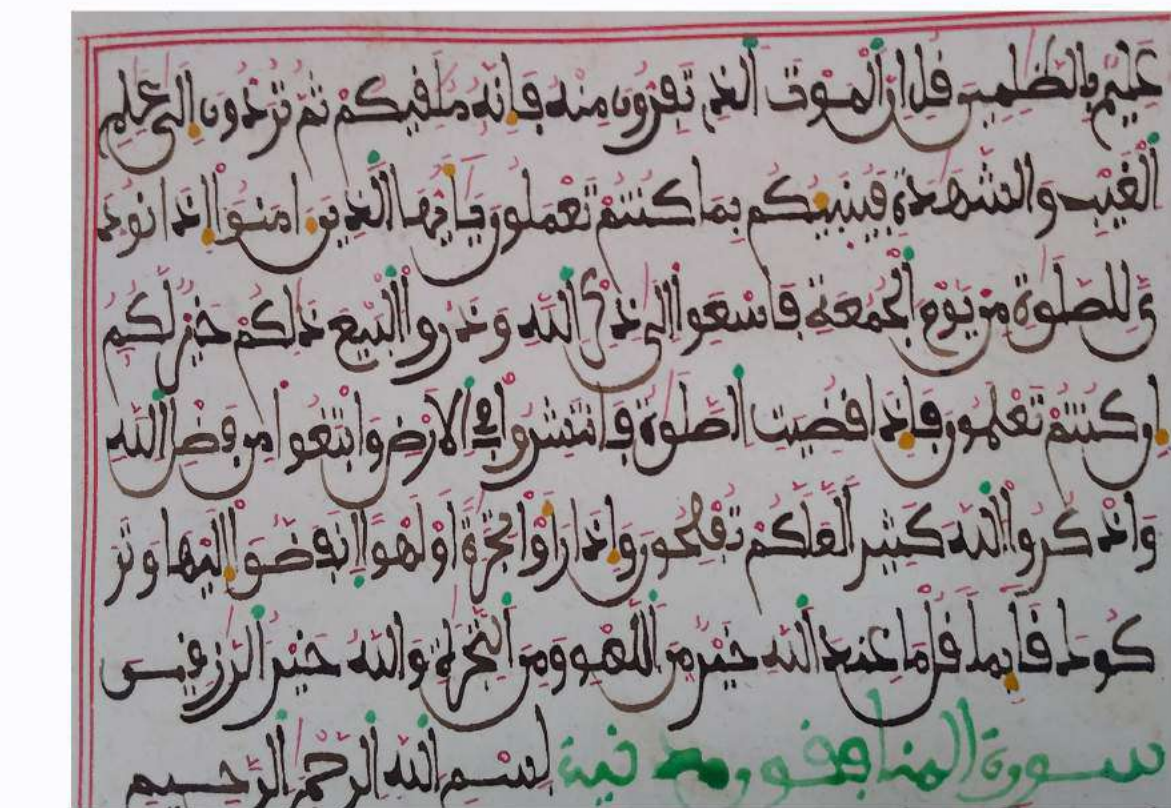 عليم بالظلمين قل ان الموت الذي تفرون منه فانه ملقيكم ثم تردون الى علم
الغيب والشهدة فينبيكم بما كنتم تعملون يايها الذين امنوا اذا نود
ي للصلوة من يوم الجمعة فاسعوا الى ذكر الله وذروا البيع ذلكم خير لكم
ان كنتم تعلمون فاذا قضيت الصلوة فانتشروا في الارض وابتغوا من فضل الله
واذكروا الله كثيرا لعلكم تفلحون واذا راوا تجرة او لهوا انفضوا اليها وتر
كوك قايما قل ما عند الله خير من اللهو ومن التجرة والله خير الرزقين
سورة المنافقون مدنية بسم الله الرحمن الرحيم